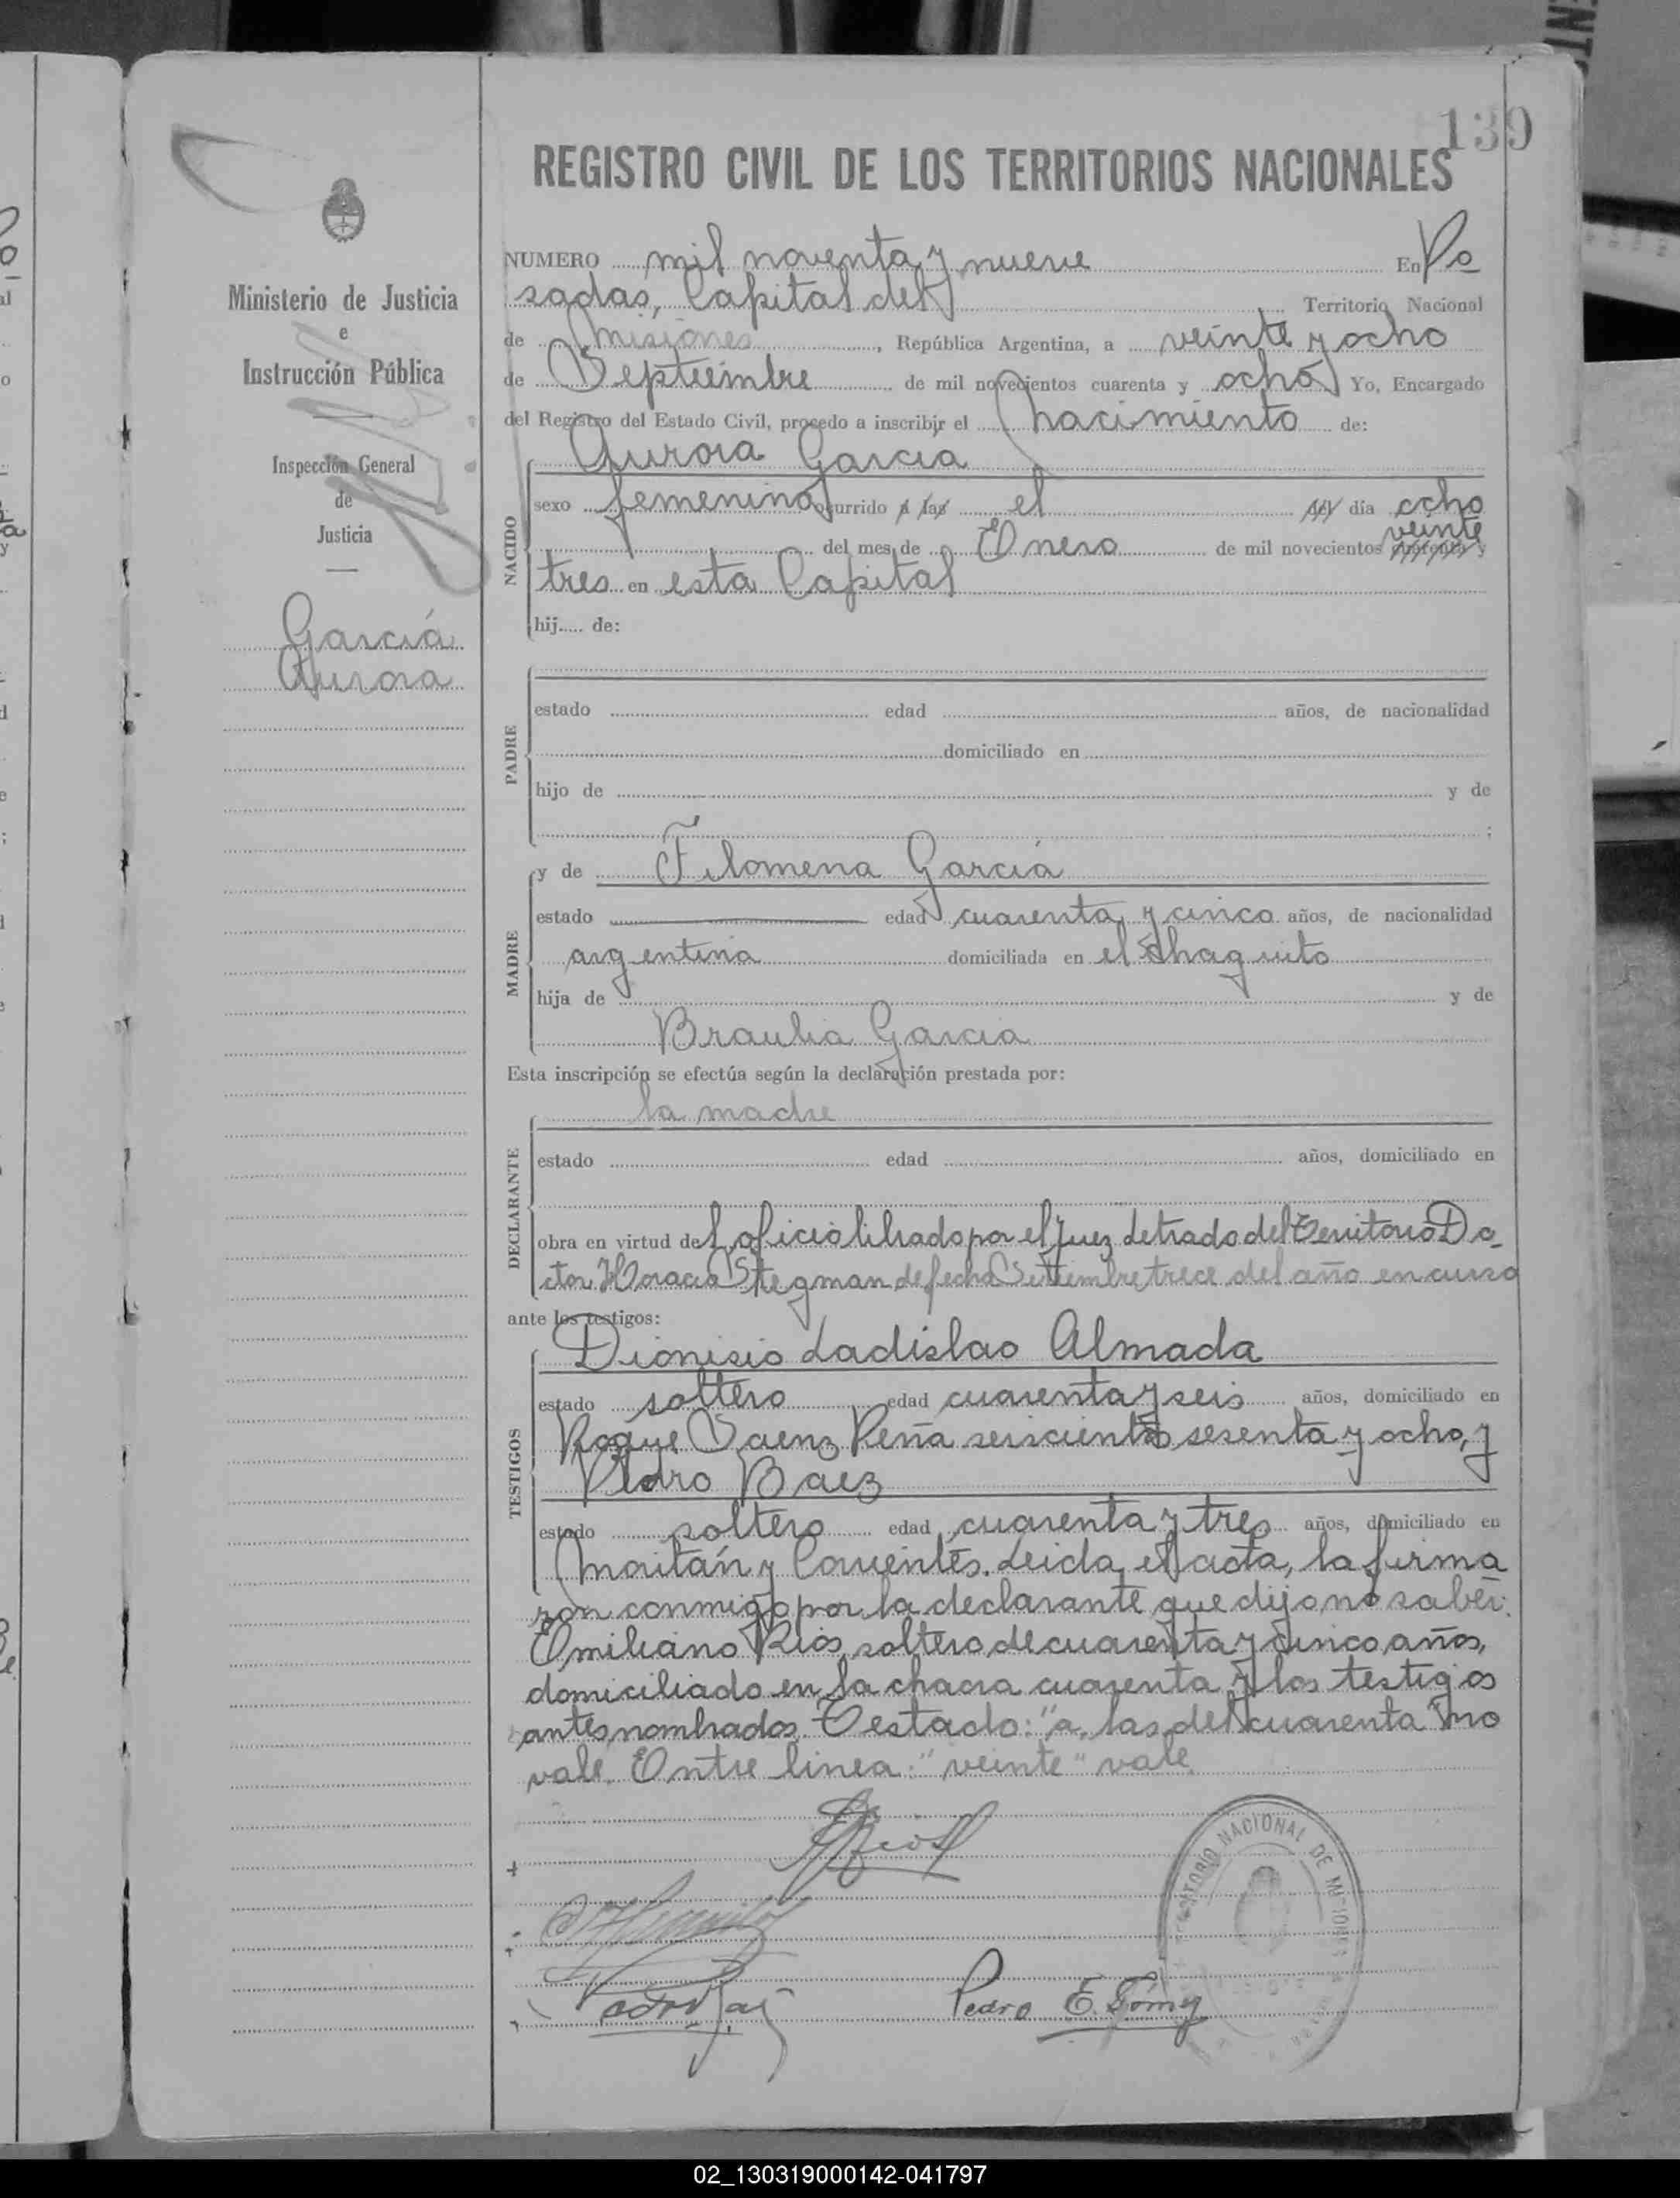 139
REGISTRO CIVIL DE LOS TERRITORIOS NACIONALES
Ministerio de Justicia
e
Instrucción Pública
Inspección General
de
Justicia
García
Aurora
NUMERO mil noventa y nueve En Po
sadas, Capital del Territorio Nacional
de Misiones, República Argentina, a veinte y ocho
de Septiembre de mil novecientos cuarenta y ocho Yo, Encargado
del Registro del Estado Civil, procedo a inscribir el nacimiento de:
NACIDO
Aurora García
sexo femenino ocurrido a las el del día ocho
veinte
del mes de Enero de mil novecientos cuarenta y
tres en esta Capital
hij..... de:
PADRE
estado edad años, de nacionalidad
domiciliado en
hijo de y de
;
MADRE
y de Filomena García
estado edad cuarenta y cinco años, de nacionalidad
argentina domiciliada en el Chaquito
hija de y de
Braulia Garcia
Esta inscripción se efectúa según la declaración prestada por:
DECLARANTE
la madre
estado edad años, domiciliado en
obra en virtud del oficio librado por el Juez Letrado del Territorio Do-
ctor Horacio Stegman de fecha Settiembre trece del año en curso
ante los testigos:
TESTIGOS
Dionisio Ladislao Almada
estado soltero edad cuarenta y seis años, domiciliado en
Roque Saenz Peña seiscientos sesenta y ocho, y
Pedro Baez
estado soltero edad cuarenta y tres años, domiciliado en
Moritán y Corrientes. Leida el acta, la firma
ron conmigo por la declarante que dijo no saber.
Emiliano Rios, soltero de cuarenta y cinco años,
domiciliado en la chacra cuarenta y los testigos
antes nombrados. Testado: "a, las, del, cuarenta" no
vale. Entre linea: "veinte" vale.
Pedro E. Gómez
TERRITORIO NACIONAL DE MISIONES
02_130319000142-041797